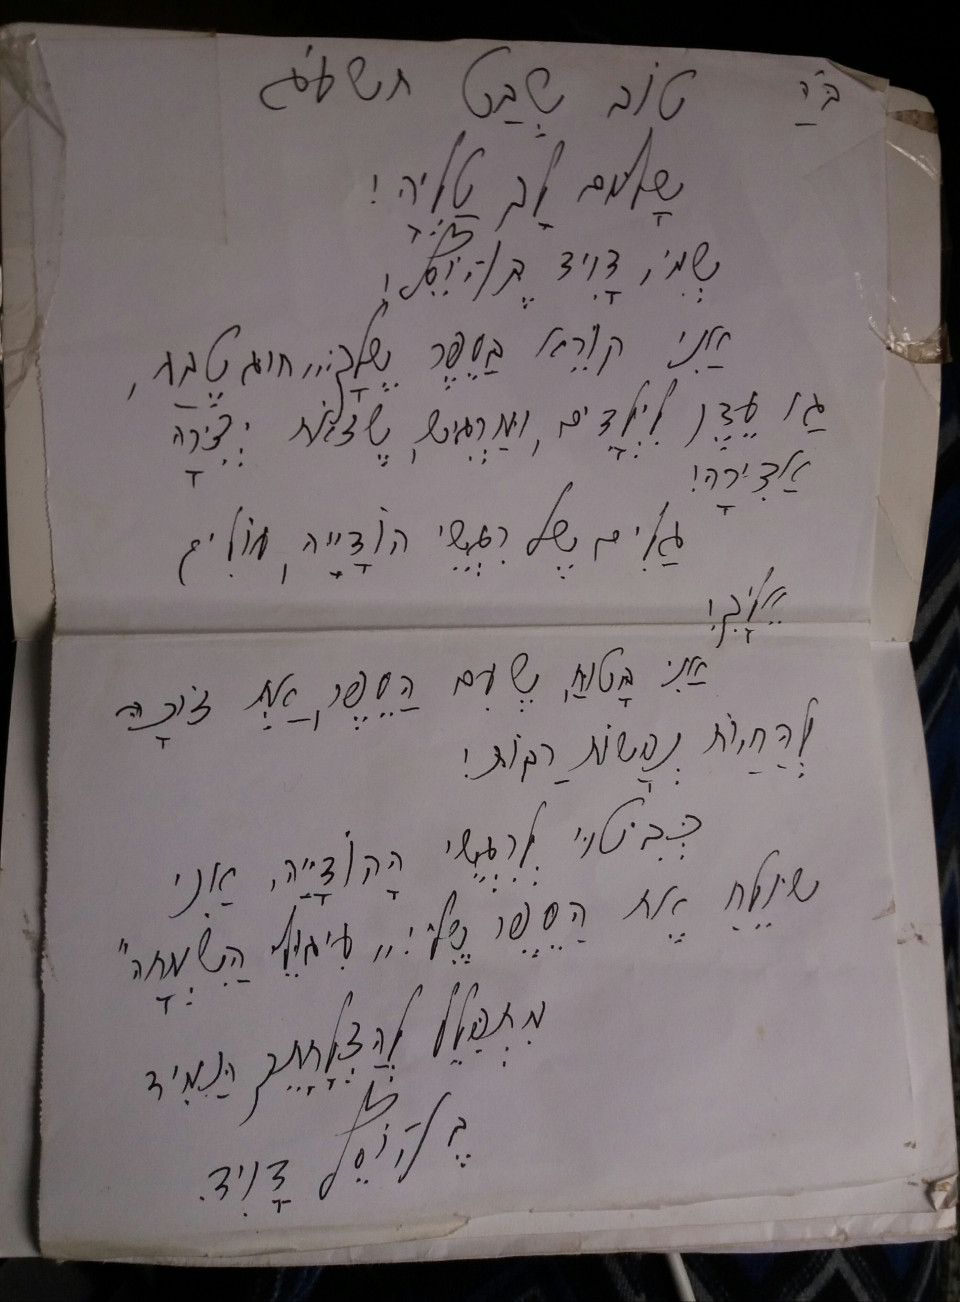 ב"ה טוֹב שְׁבַט תשע"ג
שָׁלוֹם לָךְ טַלְיָה!
שְׁמִי, דָוִיד בֶּן
אֲנִי קוֹרֵא בַּסֵפֶר שֶׁלָךְ: ,,
גַן עֵדֶן לִילָדִים, וּמַרְגִישׁ, שֶׁזֹאת יְצִירָה
אַדִירָה!
גַלִים שֶׁל רִגְשֵׁי הוֹדָיָיה, עוֹלִים
אֵלָיִךְ!
אֲנִי בָּטוּחַ, שֶׁעִם הַסֵפֶר, אַתְּ זוֹכָה
לְהַחֲיוֹת נְפָשׁוֹת רַבּוֹת!
כְּבִיטוּי לְרִגְשֵׁי הַהוֹדָיַיה, אֲנִי
שׁוֹלֵחַ אֶת הַסֵפֶר שֶׁלִי: ,, עִיגוּלֵי הַשִׂמְחָה"
מִתְפַּלֵל לְהַצְלָחָתֵךְ תַּמִיד
בֶּן דָוִיד.